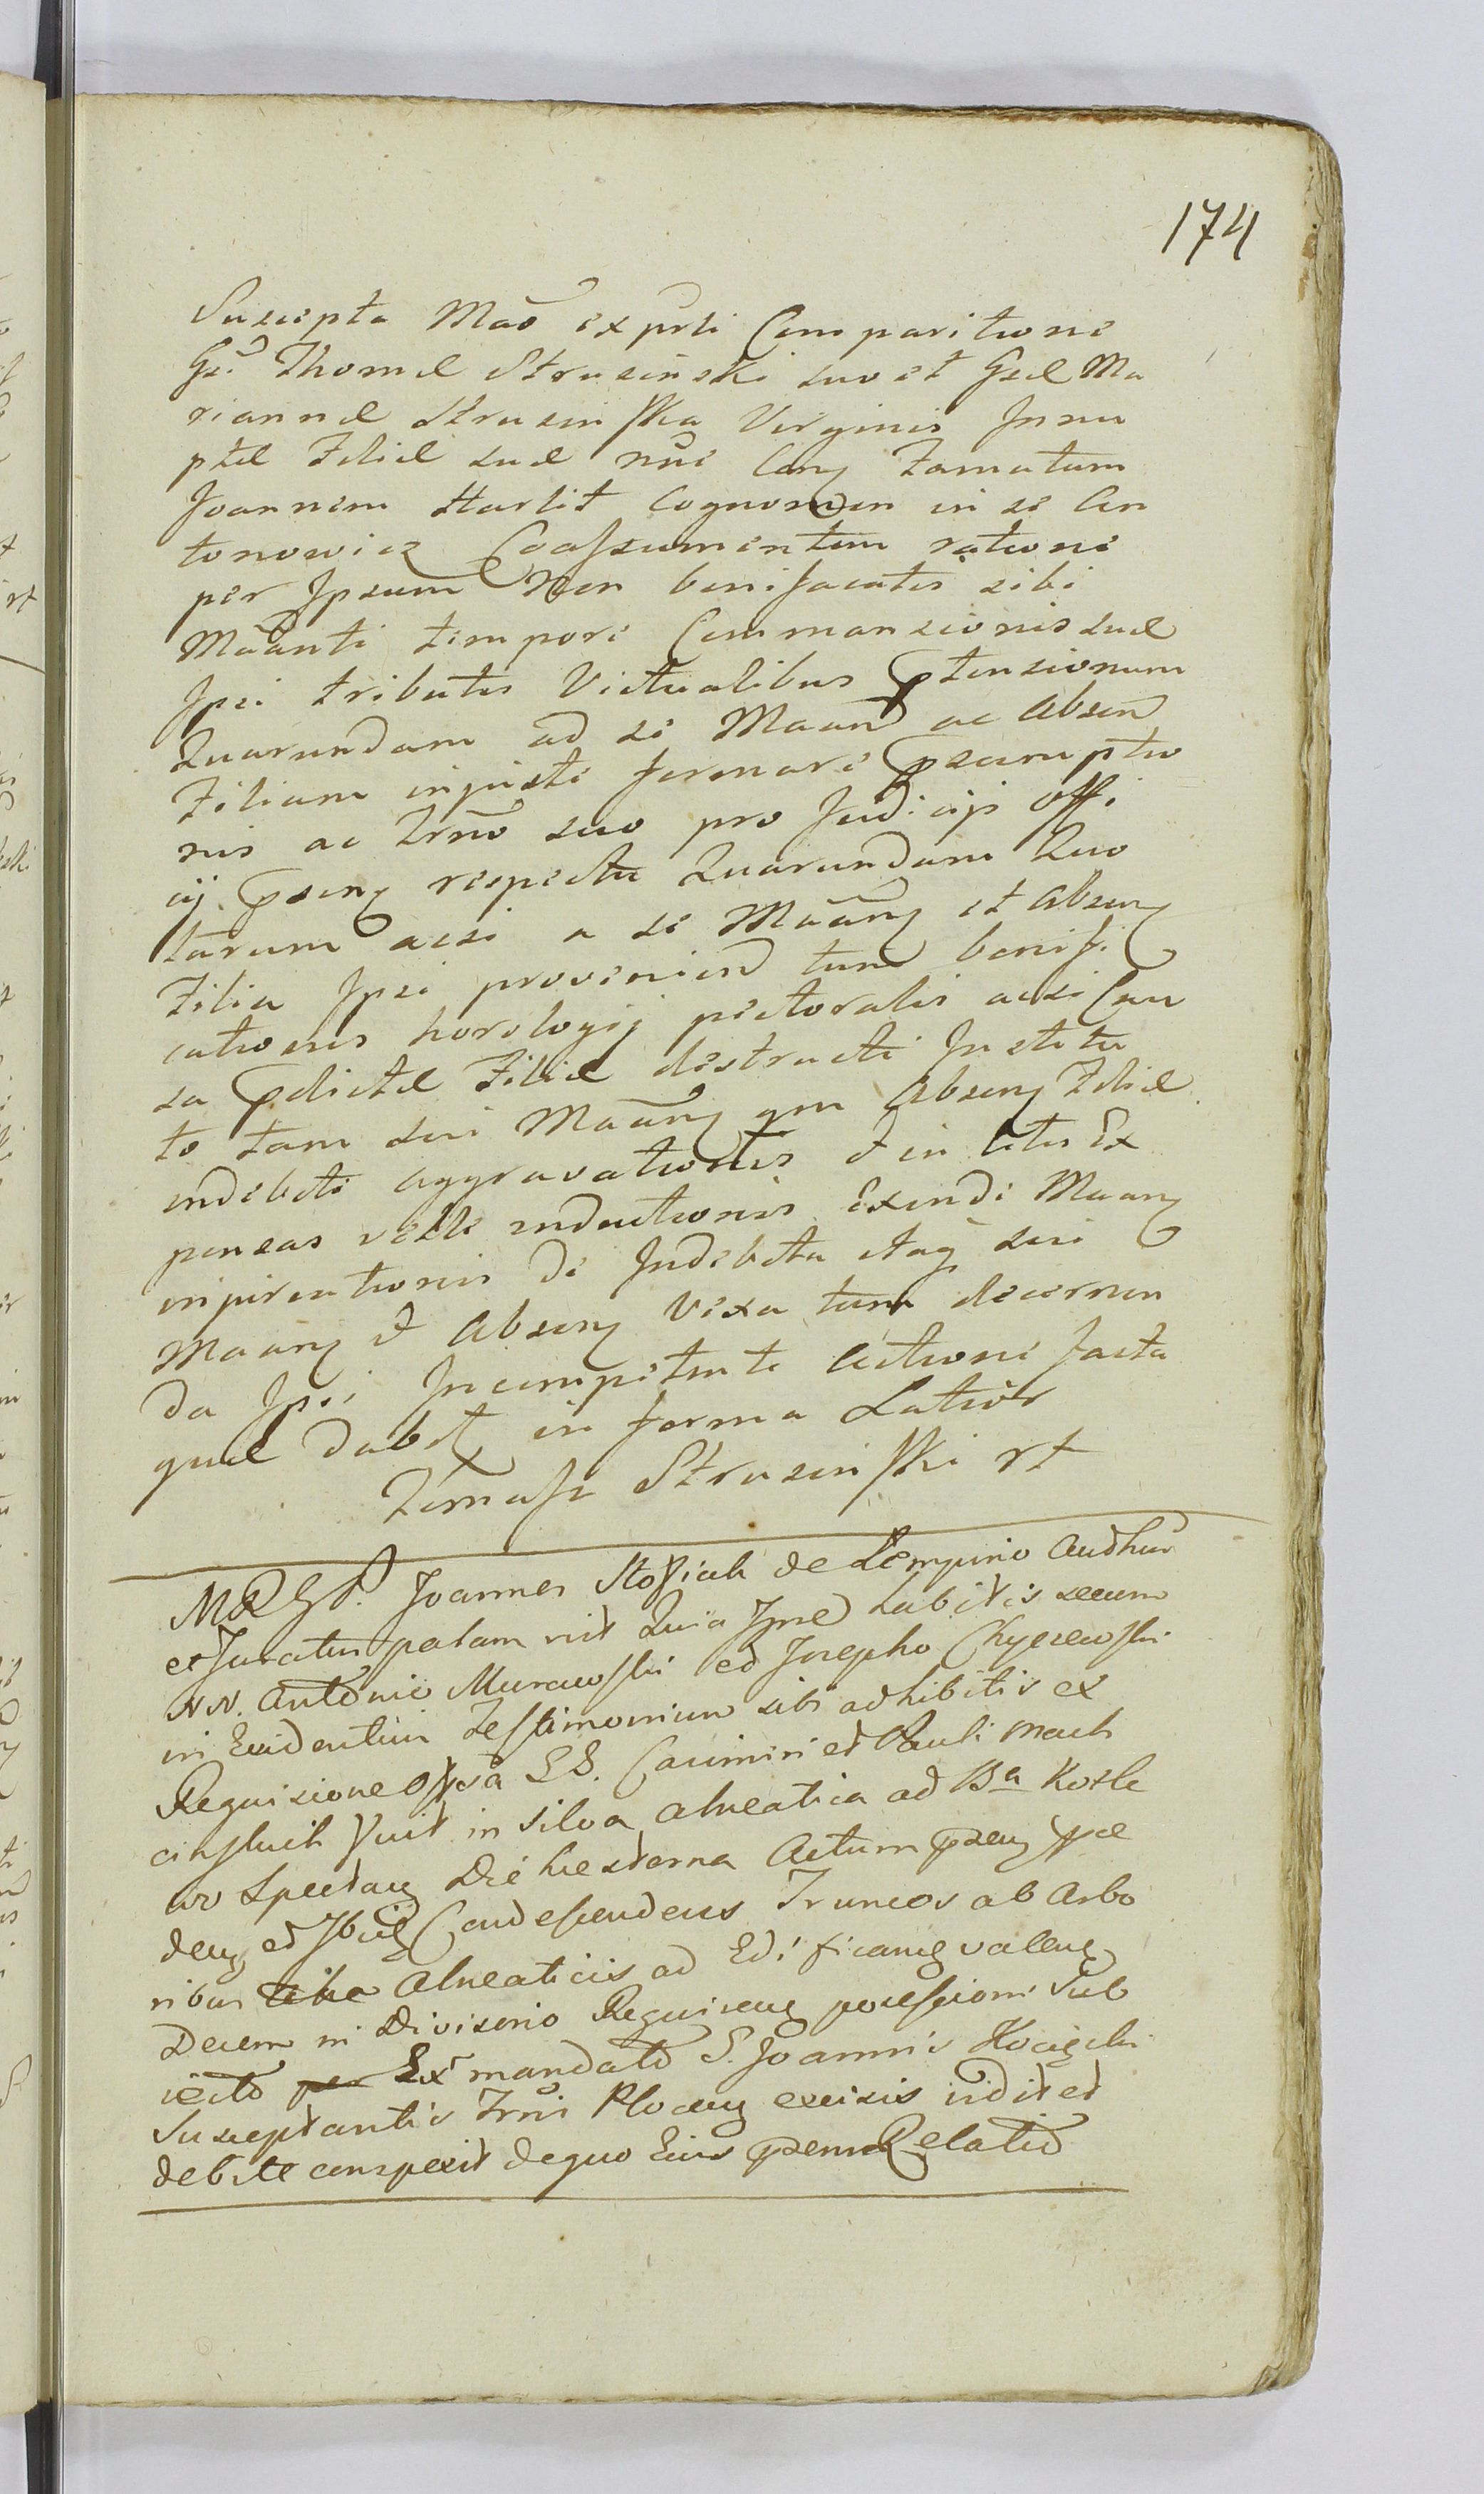 174
Suscepta Mão ex prti Comparitione
Gsi Thomæ Strusinski suo et Gsæ Ma
riannæ Strusinska Virginis Innu
ptæ Filiæ suæ nñe Famatum
Joannem Harlit Cognomen in se An
tonowicz Coassumentem ratione
per Ipsum Non benifacatis sibi
Mãanti tempore Commansionis suæ
Ipsi tributis Victualibus ptensionum
Quarundam ad se Maan ac Absen
Filiam injuste formare psumptio
nis ac Trmo suo pro Judicijs Offi
cij psenz respectu Quarundam Quo
tarum acsi a se Mãanz et Absenz
Filia Ipsi provenien tum benifi
cationis horologij pectoralis acsi Cau
sa pdictæ Filiæ destructi Institu
to tam sui Mãanz qm Absenz Filiæ
indebite aggravationis et in litis Ex
pensas velle inductionis Exinde Maanz
injuriationis de Indebita itaq sui
Maanz et Absenz Vexa tum decernen
da Ipsi Incompitente Actione facta
quæ dabit in forma Latiori
Tomasz Strusinski rt
MRGP. Joannes Stosiak de Lempino
et Juratus palam rit Quia Ipse habitis secum
NN. Antonio Murawski et Josepho Chyczewski
in Evidentius Testimonium sibi adhibitis ex
Requisione SS. Casimiri et Pauli Mach
cinskich fuit in Silva alneatica ad Ba Kozle
wo Spectanz Die hesterna Actum psenz pce
denz et Ibidz Condescendens Truncos ab Arbo
ribus Alneaticis ad Edificanz valenz
Decem in Divisorio Requirenz possessioni Sub
iecto per Ex mandato S. Joannis Kocięcki
Susceptantis Trrni Plocenz excisis vidit et
debite conspexit de quo Eius psens Relatio